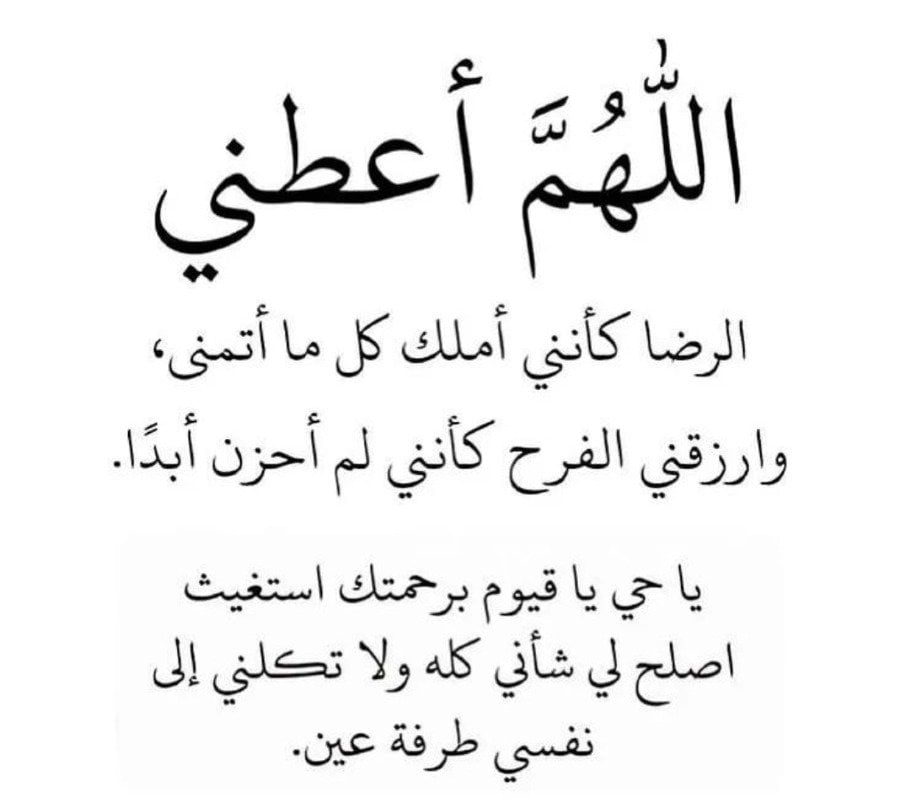 اللّٰهُمَّ أعطني
الرضا كأنني أملك كل ما أتمنى،
وارزقني الفرح كأنني لم أحزن أبدًا.
يا حي يا قيوم برحمتك استغيث
اصلح لي شأني كله ولا تكلني إلى
نفسي طرفة عين.